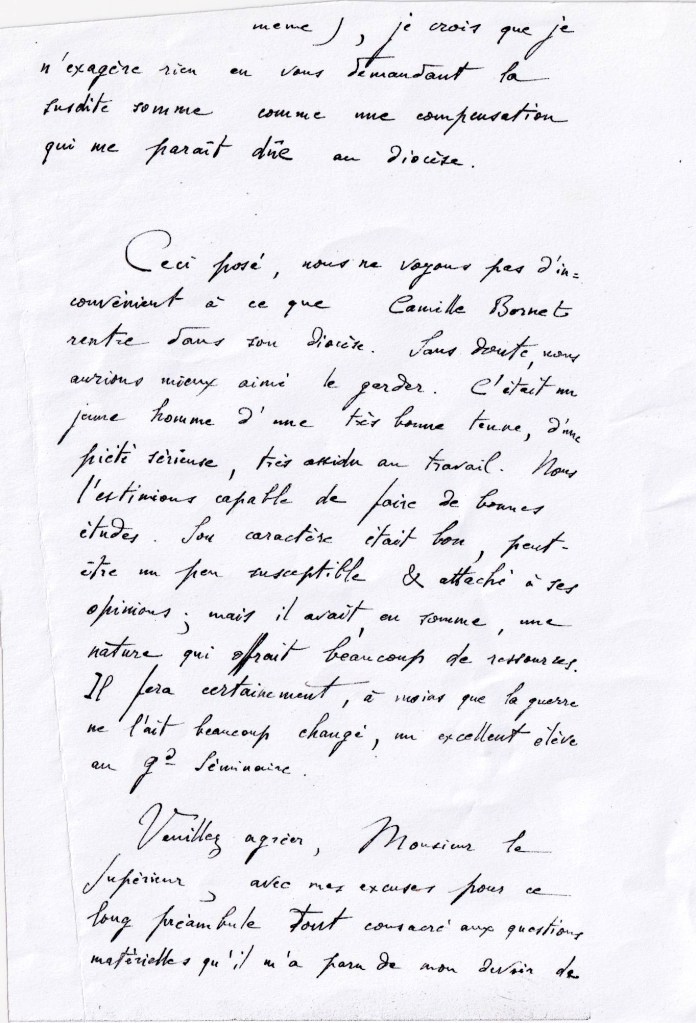 meme), je crois que je
n'exagère rien en vous demandant la
susdite somme comme une compensation
qui me paraît dûe au diocèse.
Ceci posé, nous ne voyons pas d'in=
convénient à ce que Camille Bornet
rentre dans son diocèse. Sans doute, nous
aurions mieux aimé le garder. C'était un
jeune homme d'une très bonne tenue, d'une
piété sérieuse, très assidu au travail. Nous
l'estimions capable de faire de bonnes
études. Son caractère était bon, peut-
être un peu susceptible & attaché à ses
opinions; mais il avait, en somme, une
nature qui offrait beaucoup de ressources.
Il fera certainement, à moins que la guerre
ne l'ait beaucoup changé, un excellent élève
au gd Séminaire.
Veuillez agréer, Monsieur le
Supérieur, avec mes excuses pour ce
long préambule tout consacré aux questions
matérielles qu'il m'a paru de mon devoir de